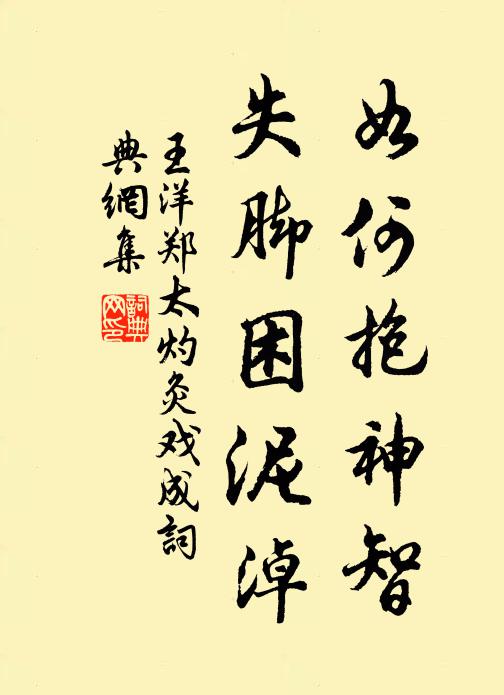 如何抱神智
失脚困泥淖
王洋郑太灼灸戏成詞
典網集
詞典網印